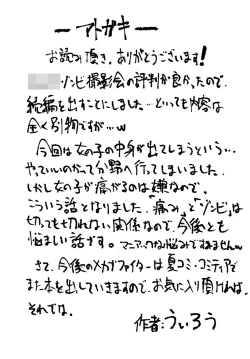 ーアトガキー
お読み頂き、ありがとうございます!
ゾンビ撮影会の評判が良かったので、
続編を出すことにしました…といっても内容は
全く別物ですが…w
今回は女の子の中身が出てしまうという…
やっていいのかって分野へ行ってしまいました。
しかし女の子が痛がるのは嫌なので、
こういう話となりました。「痛み」と「ゾンビ」は
切っても切れない関係なので、今後とも
悩ましい話です。マニアックな悩みですみませんw
さて、今後のメカファイターは夏コミ・コミティアで
また本を出していきますので、お気に入り頂ければ。
それでは。
作者:ういろう